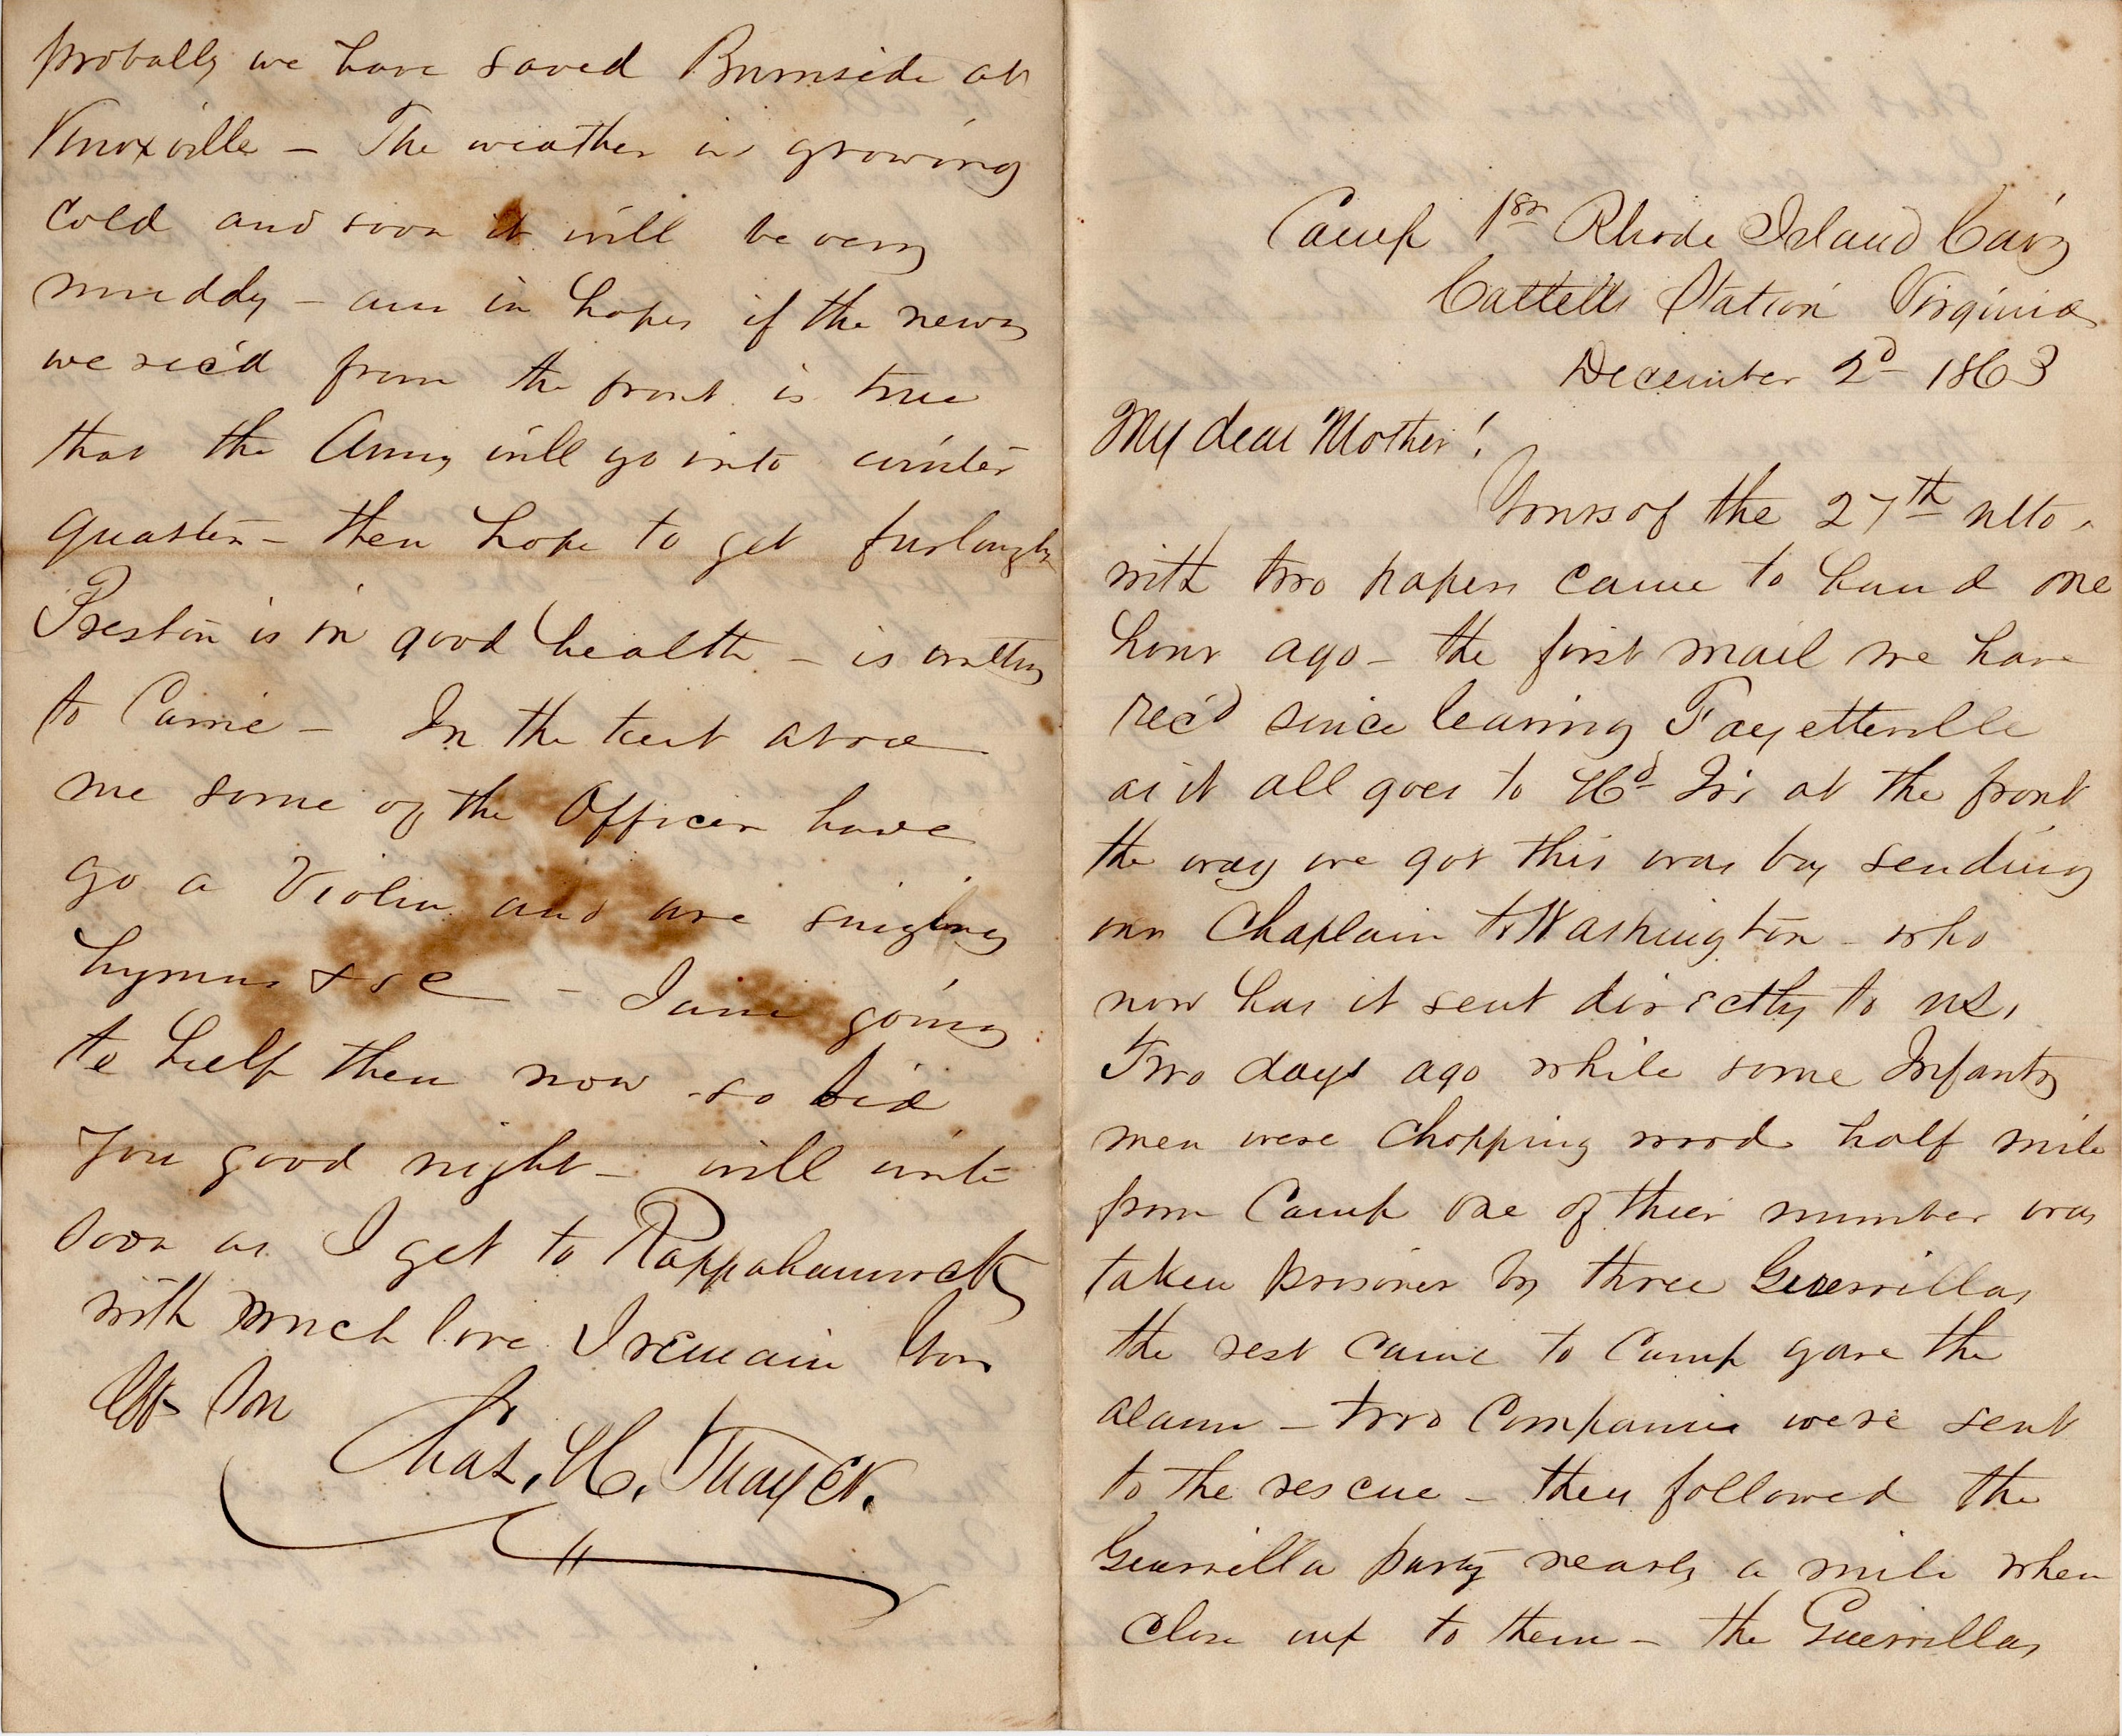 Camp 1st Rhode Island Cav'y
Cattetts Station Virginia
December 2d 1863
My dear Mother!
Yours of the 27th ulto.
with two papers came to hand one
hour ago – the first mail we have
rec'd since leaving Fayetteville
as it all goes to Hd Qr's at the front
the way we got this was by sending
our Chaplain to Washington – who
now has it sent directly to us,
Two days ago while some Infantry
men were chopping wood half mile
from Camp one of their number was
taken prisoner by three Guerrillas
the rest came to Camp gave the
alarm – two Companies were sent
to the rescue – they followed the
Guerrilla party nearly a mile when
close up to them – the Guerrillas
probally we have saved Burnside at
Knoxville – The weather is growing
cold and soon it will be very
muddy – am in hopes if the news
we rec'd from the front is true
that the Army will go into winter
quarters – then hope to get furlough
Preston is in good health – is writing
to Carrie – In the tent above
me some of the Officers have
go a Violin and are singing
hymns &c – I am going
to help them now so bid
you good night – will write
soon as I get to Rappahannock
with much love I remain Your
Aff Son
Chas. H. Thayer.